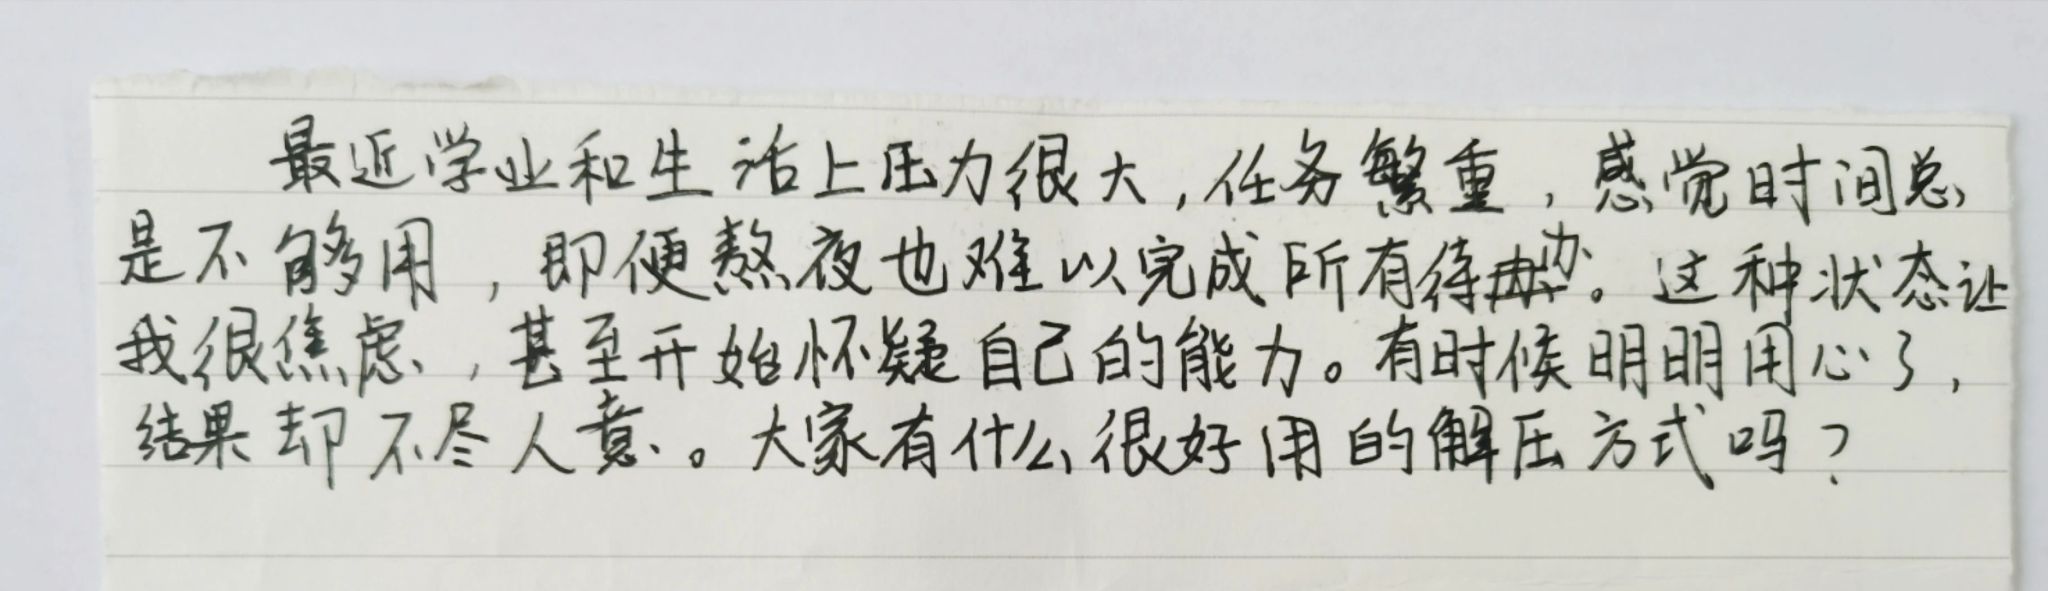 最近学业和生活上压力很大,任务繁重,感觉时间总
是不够用,即便熬夜也难以完成所有待办。这种状态让
我很焦虑,甚至开始怀疑自己的能力。有时候明明用心了,
结果却不尽人意。大家有什么很好用的解压方式吗?